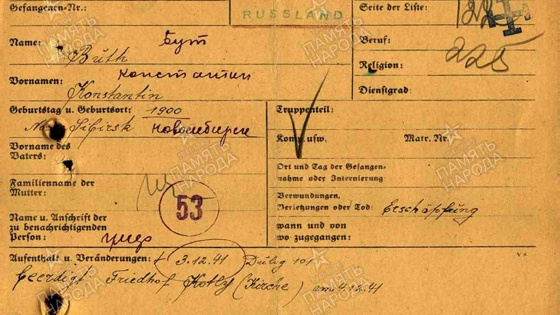 Gefangenen-Nr.:
RUSSLAND
Seite der Liste:
Name: Бут
Bruth
Beruf:
225
Vornamen: Константин
Konstantin
Religion:
Dienstgrad:
Geburtstag u. Geburtsort: 1900
Sibirsk Новосибирск
Truppenteil:
Komp. usw.
Matr. Nr.
Vorname des
Vaters:
Ort und Tag der Gefangen-
nahme oder Internierung
Familienname der
Mutter:
53
Verwundungen,
Verletzungen oder Tod: Erschöpfung
Name u. Anschrift der
zu benachrichtigenden
Person:
wann und von
wo zugegangen:
Aufenthalt u. Veränderungen: + 3.12.41 Dulag 101
Beerdigt: Friedhof Kotly (Kirche) am 4.12.41
ПАМЯТЬ НАРОДА